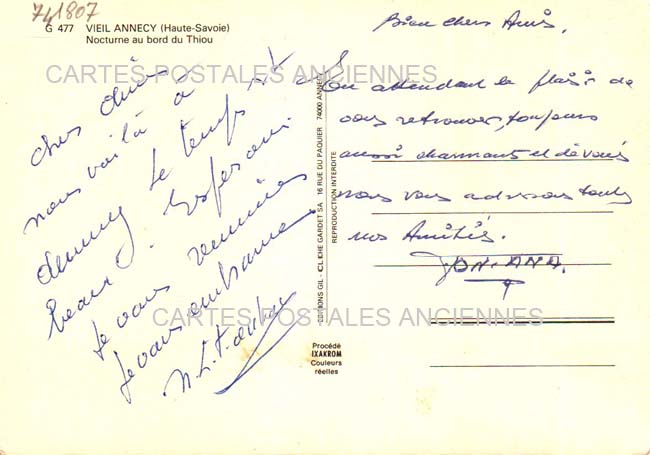 741807
G 477 VIEIL ANNECY (Haute-Savoie)
Nocturne au bord du Thiou
CARTES POSTALES ANCIENNES
chers amis
nous voilà à
Annecy le temps est
beau. Esperons
Je vous
Je vous embrasse
EDITIONS GIL - CLICHE GARDET SA 16 RUE DU PAQUIER 74000 ANNECY
REPRODUCTION INTERDITE
Bien chers Amis,
En attendant le plaisir de
vous retrouver, toujours
aussi charmants et dévoués
nous vous adressons toutes
nos Amitiés.
CARTES POSTALES ANCIENNES
Procédé
IXAKROM
Couleurs
réelles